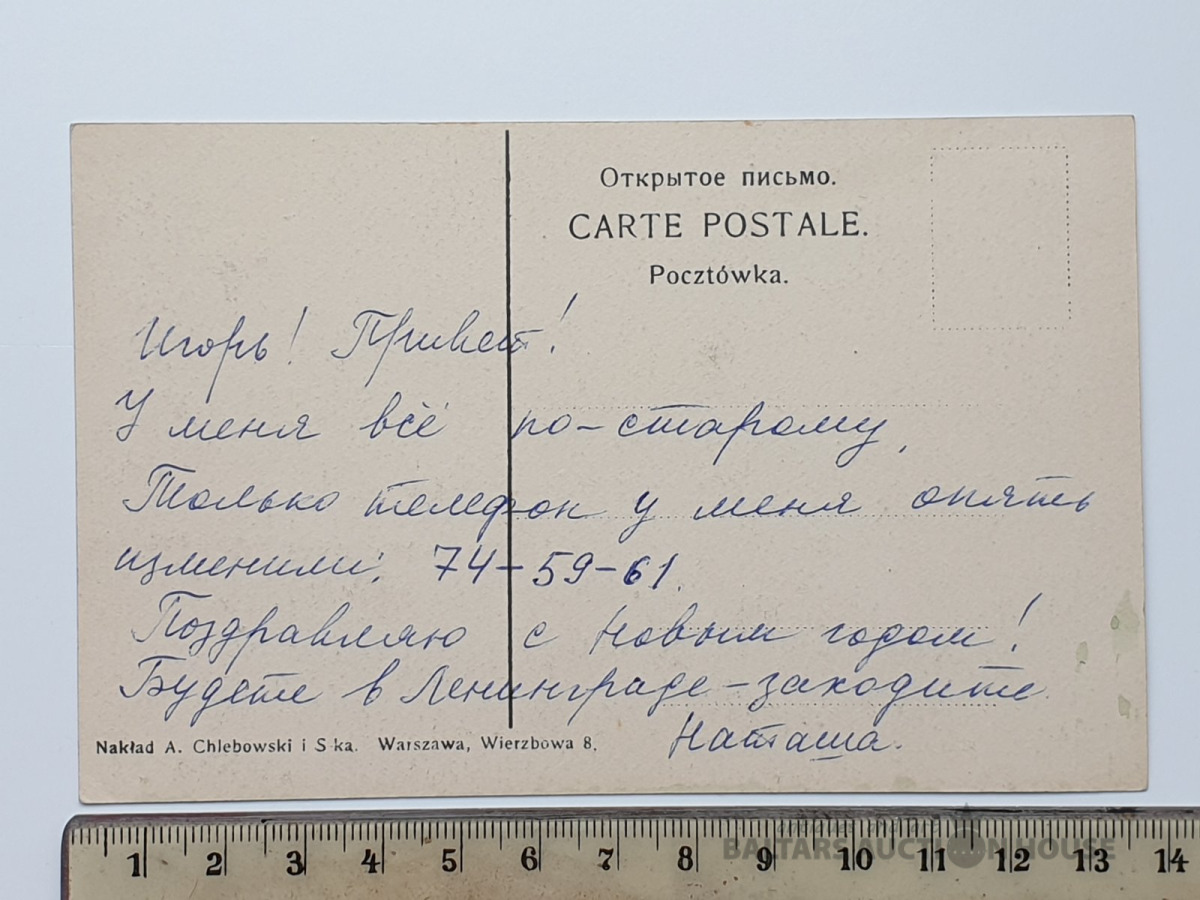 Открытое письмо.
CARTE POSTALE.
Pocztówka.
Игорь! Привет!
У меня всё по-старому,
Только телефон у меня опять
изменили: 74-59-61.
Поздравляю с Новым годом!
Будете в Ленинграде - заходите.
Наташа.
Nakład A. Chlebowski i S-ka. Warszawa, Wierzbowa 8.
antiques and art
BALTARS AUCTION HOUSE
1 2 3 4 5 6 7 8 9 10 11 12 13 14